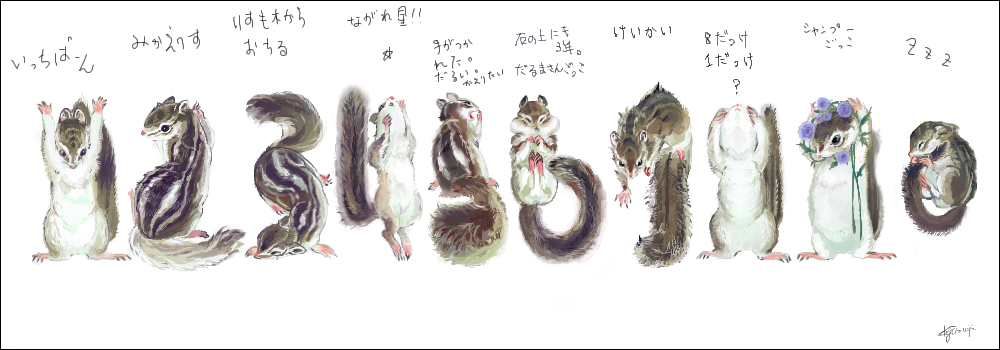 いっちばーん
みかえりす
りすも木から
おちる
ながれ星!!
手がつか
れた。
だるい。
かえりたい
石の上にも
3年。
だるまさんごっこ
けいかい
8だっけ
1だっけ
?
シャンプー
ごっこ
Z Z Z